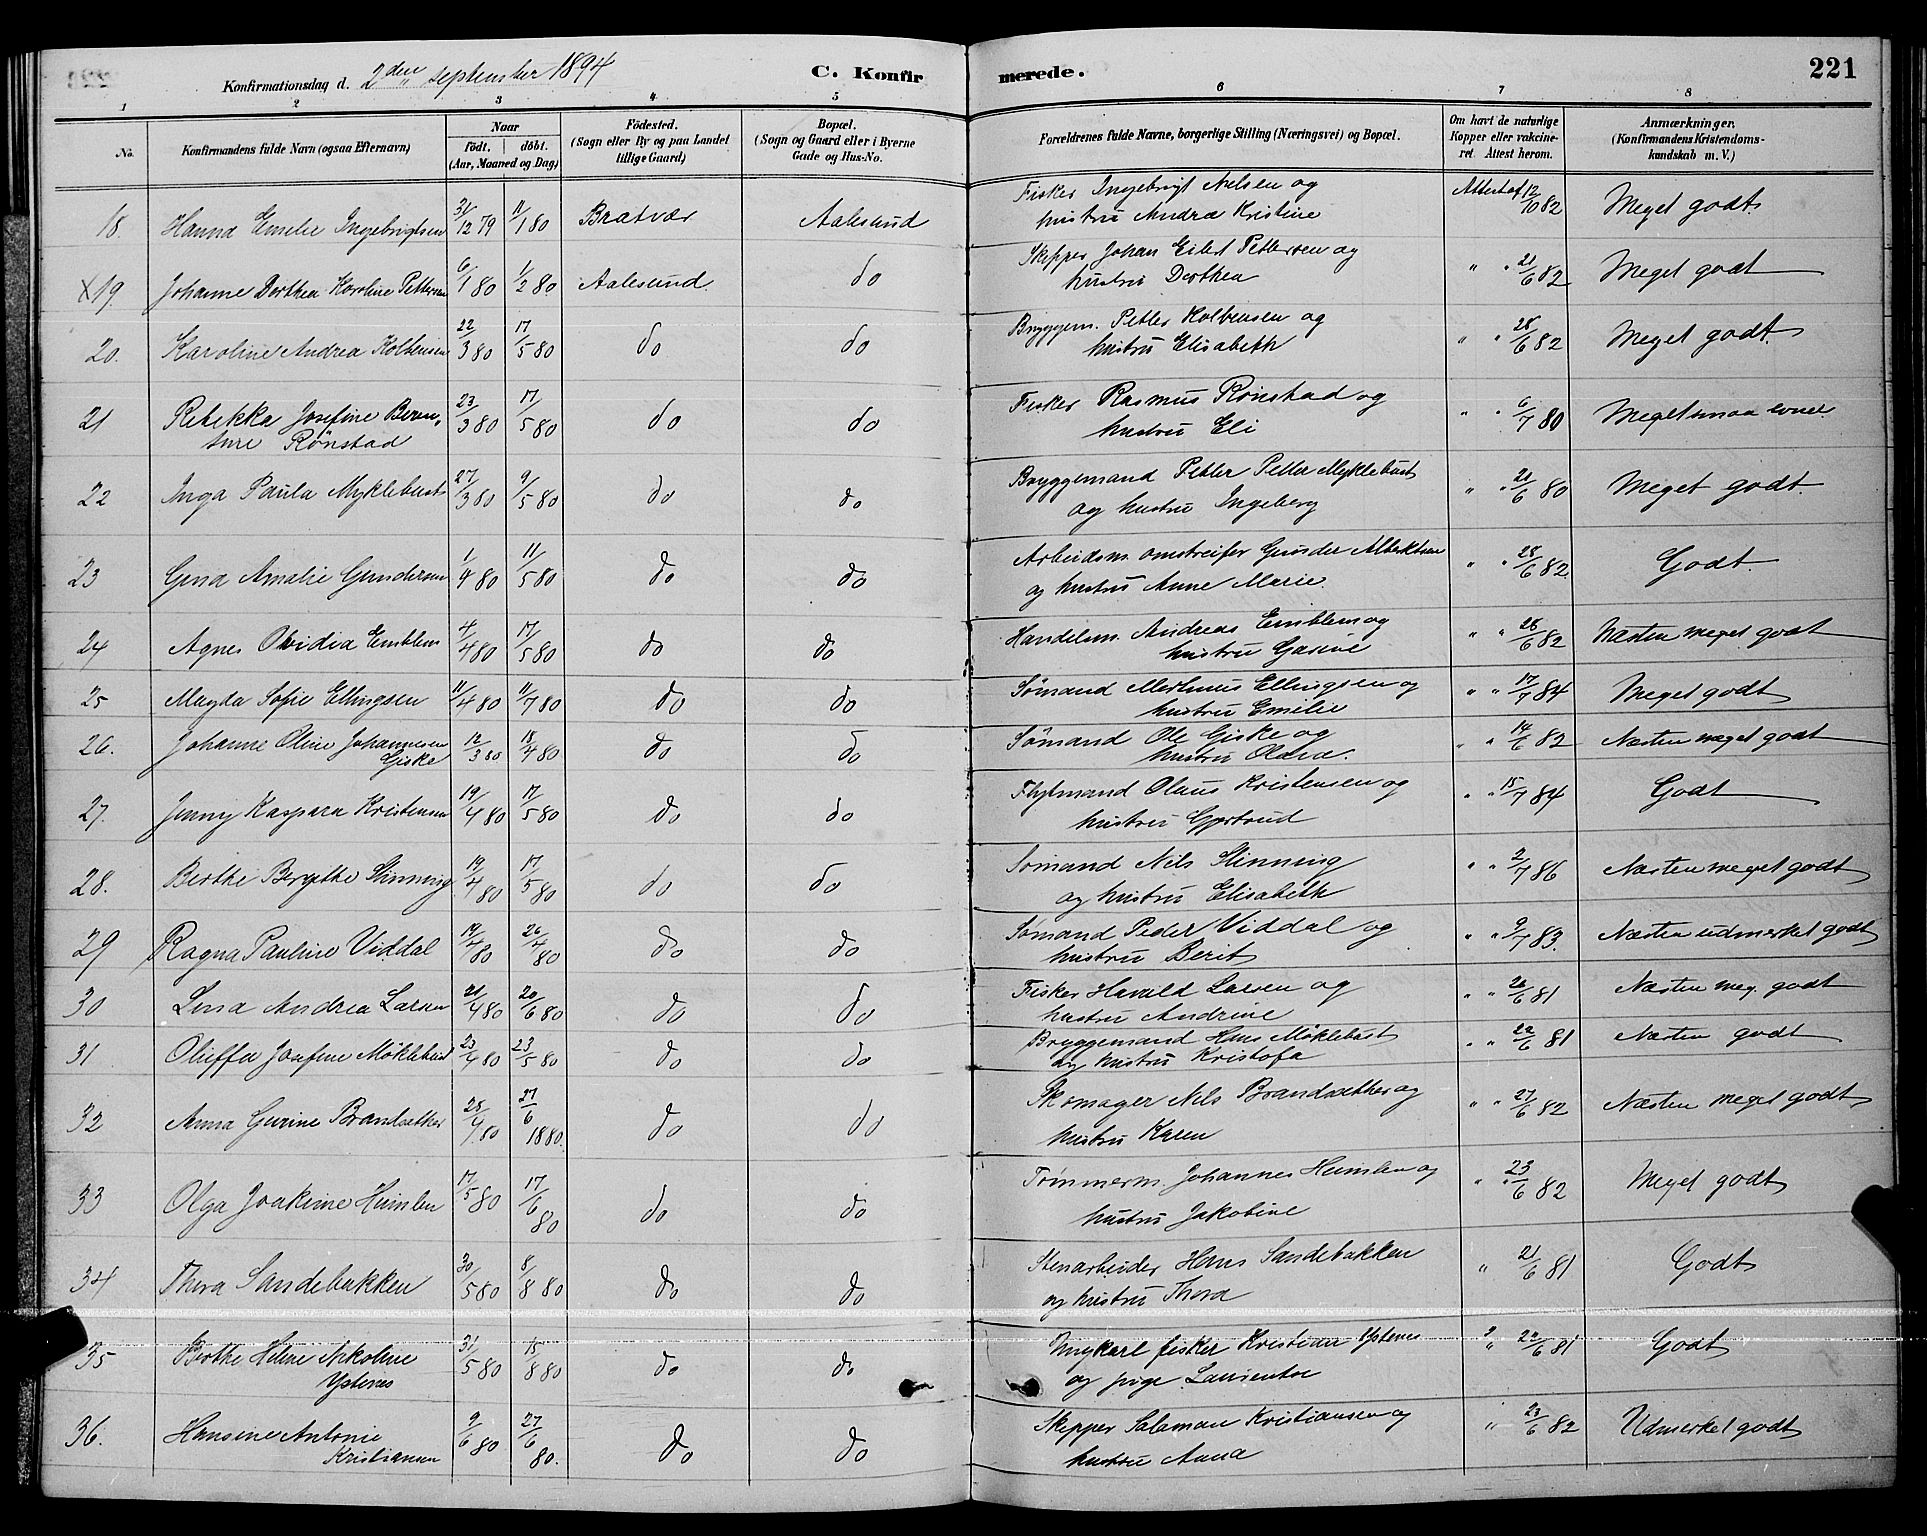 Konfirmationsdag d. 2den september 1894 C. Konfirmerede. 221
1 2 3 4 5 6 7 8
No. Konfirmandens fulde Navn (ogsaa Efternavn) Naar født. døbt. (Aar, Maaned og Dag) Fødested. (Sogn eller By og paa Landet tillige Gaard) Bopæl. (Sogn og Gaard eller i Byerne Gade og Hus-No. Forældrenes fulde Navne, borgerlige Stilling (Næringsvei) og Bopæl. Om havt de naturlige Kopper eller vakcineret. Attest herom. Anmærkninger. (Konfirmandens Kristendomskundskab m. V.)
18. Hanna Emelie Ingebrigtsen 31/12 79 11/1 80 Bratvær Aalesund Fisker Ingebrigt Nielsen og
hustru Andrea Kristine Attest af 12/10 82 Meget godt
19 Johanne Dorthea Karoline Pettersen 6/1 80 1/2 80 Aalesund. do Skipper Johan Eilert Pettersen og
hustru Dorthea " " 21/6 82 Meget godt
20. Karoline Andrea Kolbensen 22/3 80 17/5 80 do do Bryggem. Petter Kolbensen og
hustru Elisabeth " " 28/6 82 Meget godt.
21 Rebekka Josefine Beren-
tine Rønstad 23/3 80 17/5 80 do do Fisker Rasmus Rønstad og
hustru Eli " " 6/7 80 Meget smaa evner
22 Inga Paula Myklebust 27/3 80 9/5 80 do do Bryggemand Petter Petter Myklebust
og hustru Ingeberg " " 21/6 80 Meget godt.
23 Gina Amalie Gundersen 1/4 80 11/5 80 do do Arbeidsm. omstreifer Gunder Albrektsen
og hustru Anne Marie. " " 28/6 82 Godt.
24 Agnes Ovidia Emblem 4/4 80 17/5 80 do do Handelsm. Andreas Emblem og
hustru Gasine " " 28/6 82 Næsten meget godt
25 Magda Sofie Ellingsen 11/4 80 11/7 80 do do Sømand Marthinus Ellingsen og
hustru Emilie " " 17/7 84 Meget godt
26. Johanne Oline Johannesen
Giske 12/3 80 18/4 80 do do Sømand Ole Giske og
hustru Olava. " " 14/6 82 Næsten meget godt
27. Jenny Kaspara Kristensen 19/4 80 17/5 80 do do Flytmand Olaus Kristensen og
hustru Gjertrud " " 15/7 84 Godt
28. Berthe Bergitte Slinning 19/4 80 17/5 80 do do Sømand Nils Slinning
og hustru Elisabeth " " 2/7 86 Næsten meget godt
29 Ragna Pauline Viddal 19/4 80 26/4 80 do do Sømand Peder Viddal og
hustru Berit " " 9/7 83. Næsten udmerket godt
30 Lina Andrea Larsen 21/4 80 20/6 80 do do Fisker Havald Larsen og
hustru Andrine " " 26/6 81 Næsten meg. godt
31 Oluffa Josefine Møklebust 23/4 80 23/5 80 do do Bryggemand Hans Møklebust
og hustru Kristofa " " 22/6 81 Næsten godt
32 Anna Gurine Brandsæther 28/4 80 27/6 1880. do do Skomager Nils Brandsæther og
hustru Karen " " 27/6 82 Næsten meget godt
33 Olga Joakime Humlen 17/5 80 17/6 80 do do Tømmerm. Johannes Humlen og
hustru Jakobine " " 23/6 82 Meget godt
34 Thora Sandebakken 30/5 80 8/8 80 do do Stenarbeider Hans Sandebakken
og hustru Thora " 21/6 81 Godt
35 Berthe Heline Nikoline
Ystenes 31/5 80 15/8 80 do do Ungkarl fisker Kristian Ystenes
og pige Laurentse " 22/6 81 Godt
36. Hansine Antonie
Kristiansen 9/6 80 27/6 80. do do Skipper Salaman Kristiansen og
hustru Anna " 23/6 82 Udmerket godt